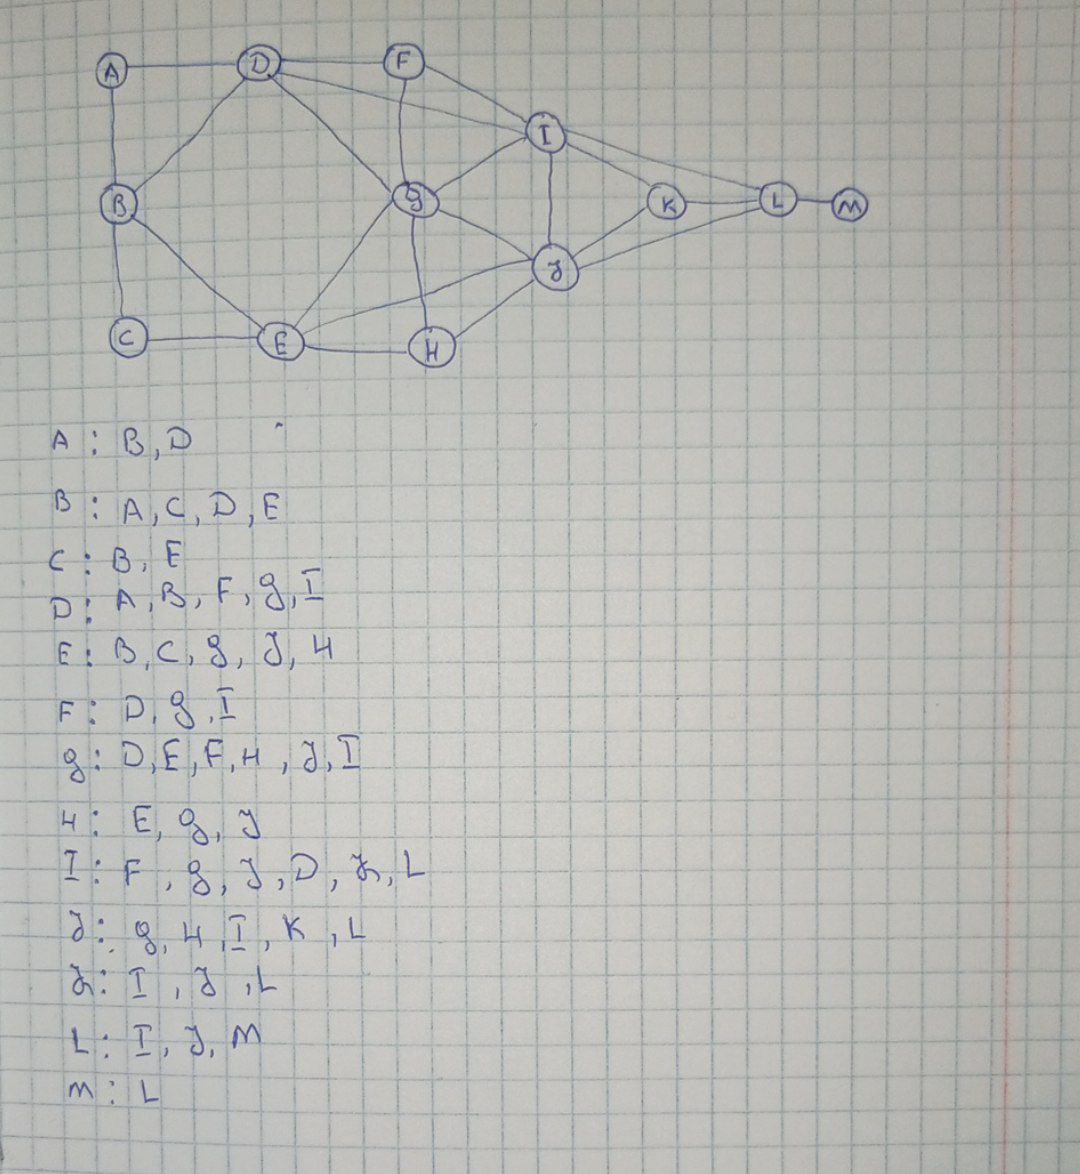 A D F
I
B g K L M
J
C E H
A : B, D
B : A, C, D, E
C : B, E
D : A, B, F, g, I
E : B, C, g, J, H
F : D, g, I
g : D, E, F, H, J, I
H : E, g, J
I : F, g, J, D, K, L
J : g, H, I, K, L
K : I, J, L
L : I, J, M
M : L